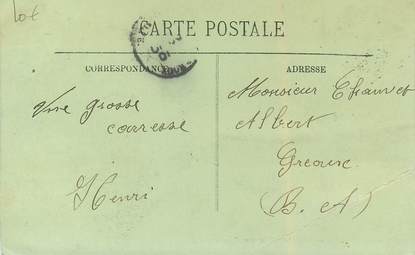 Lot
CARTE POSTALE
CORRESPONDANCE
ADRESSE
Une grosse
caresse
Henri
Monsieur
Albert
Gréoux
(B. A)